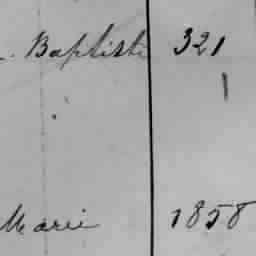 Baptiste 321
Marie 1858